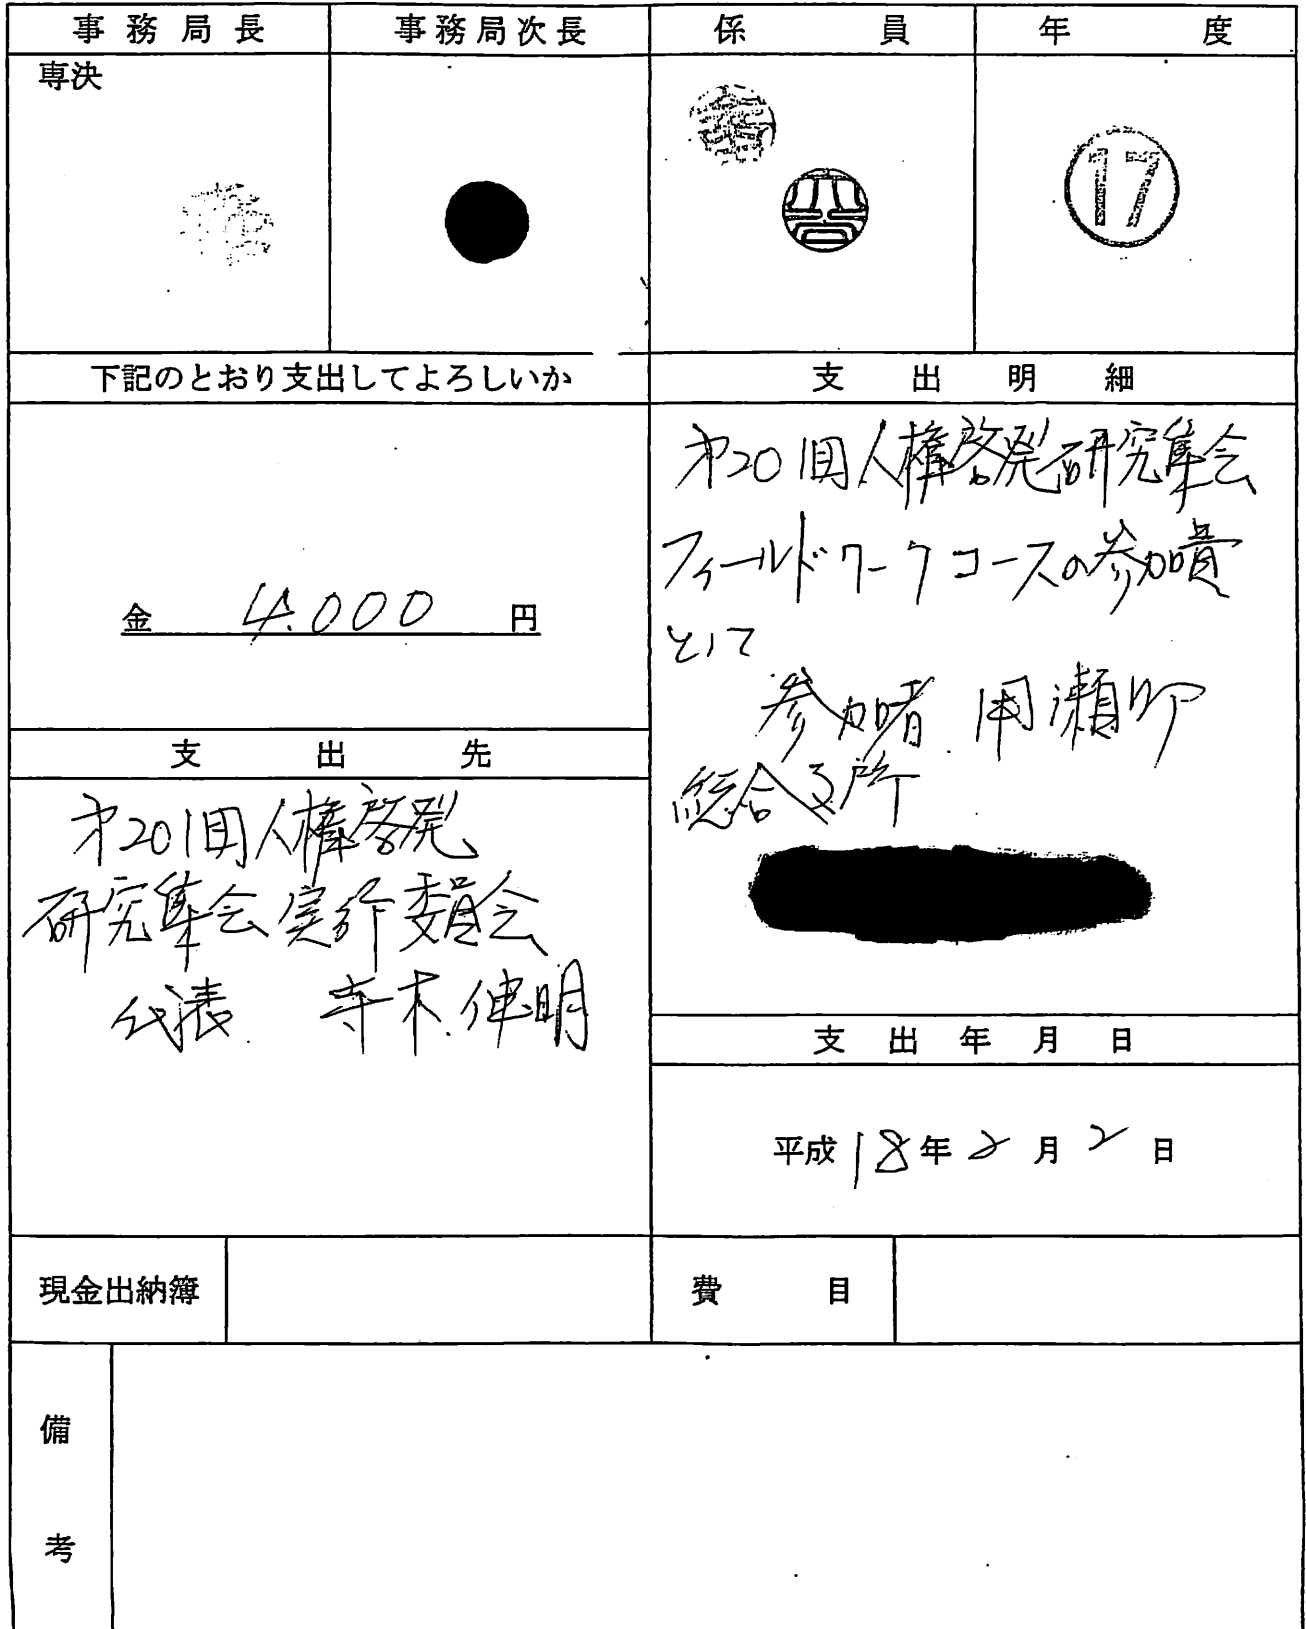 事務局長 事務局次長 係員 年度
専決
17
下記のとおり支出してよろしいか
金 4,000 円
支出先
第20回人権啓発
研究集会実行委員会
代表 寺木伸明
支出明細
第20回人権啓発研究集会
フィールドワークコースの参加費
として
参加者 用瀬町
総合支所
支出年月日
平成18年2月2日
現金出納簿
費目
備考